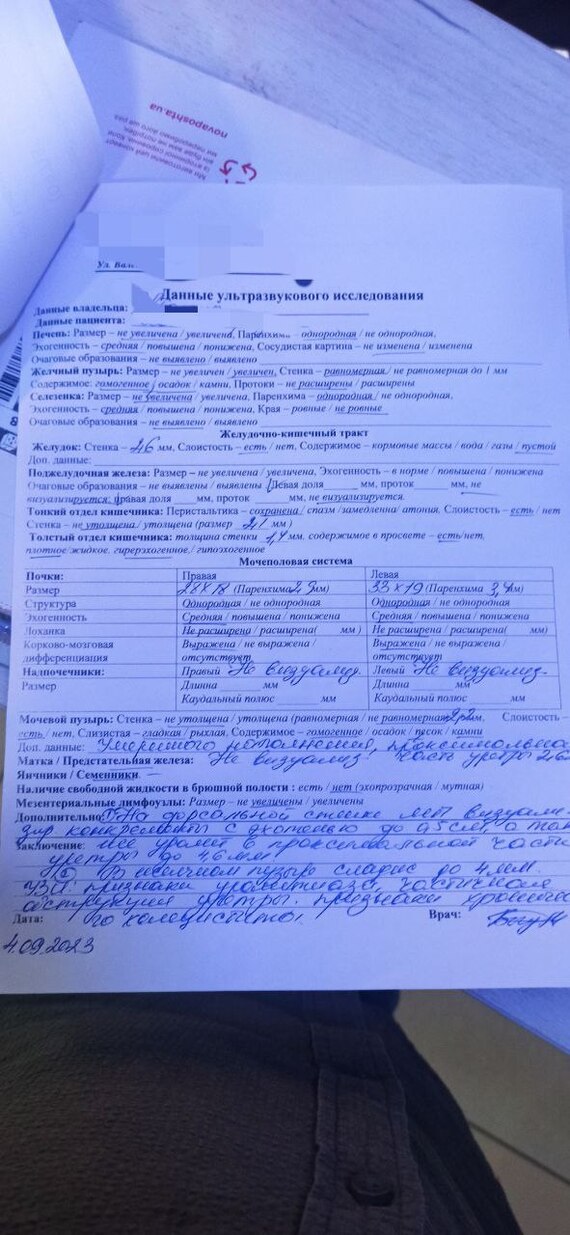 novaposhta.ua
Данные ультразвукового исследования
Данные владельца:
Данные пациента:
Печень: Размер – не увеличена / увеличена, Паренхима – однородная / не однородная,
Эхогенность – средняя / повышена / понижена, Сосудистая картина – не изменена / изменена
Очаговые образования – не выявлено / выявлено
Желчный пузырь: Размер – не увеличен / увеличен, Стенка – равномерная / не равномерная до 1 мм
Содержимое: гомогенное / осадок / камни, Протоки – не расширены / расширены
Селезенка: Размер – не увеличена / увеличена, Паренхима – однородная / не однородная,
Эхогенность – средняя / повышена / понижена, Края – ровные / не ровные
Очаговые образования – не выявлено / выявлено
Желудочно-кишечный тракт
Желудок: Стенка – мм, Слоистость – есть / нет, Содержимое – кормовые массы / вода / газы / пустой
Доп. данные:
Поджелудочная железа: Размер – не увеличена / увеличена, Эхогенность – в норме / повышена / понижена
Очаговые образования – не выявлены / выявлены Левая доля мм, проток мм, не
визуализируется; правая доля мм, проток мм, не визуализируется.
Тонкий отдел кишечника: Перистальтика – сохранена / спазм / замедленна / атония, Слоистость – есть / нет
Стенка – не утолщена / утолщена (размер 2,1 мм)
Толстый отдел кишечника: толщина стенки 1,4 мм, содержимое в просвете – есть/нет,
плотное/жидкое, гиперэхогенное / гипоэхогенное
Мочеполовая система
Почки: Правая Левая
Размер 28х18 (Паренхима мм) 33х19 (Паренхима мм)
Структура Однородная / не однородная Однородная / не однородная
Эхогенность Средняя / повышена / понижена Средняя / повышена / понижена
Лоханка Не расширена / расширена( мм ) Не расширена / расширена( мм )
Корково-мозговая дифференциация Выражена / не выражена / отсутствует Выражена / не выражена / отсутствует
Надпочечники: Правый Не визуализ. Левый Не визуализ.
Размер Длинна мм Длинна мм
Каудальный полюс мм Каудальный полюс мм
Мочевой пузырь: Стенка – не утолщена / утолщена (равномерная / не равномерная мм, Слоистость –
есть / нет, Слизистая – гладкая / рыхлая, Содержимое – гомогенное / осадок / песок / камни
Доп. данные: Умеренного наполнения, проксимальная
Матка / Предстательная железа: Не визуализ. часть уретры
Яичники / Семенники. —
Наличие свободной жидкости в брюшной полости : есть / нет (эхопрозрачная / мутная)
Мезентериальные лимфоузлы: Размер – не увеличены / увеличены
Дополнительно: На дорсальной стенке визуали-
зир. конкременты с эхотенью до 0,5 см, а так
Заключение: же уролит в проксимальной части
уретры до 4,6 мм
② В желчном пузыре сладж до 4 мм.
УЗИ признаки уролитиаза, частичная
обструкция уретры. признаки хроничес
го холецистита.
Дата: Врач:
4.09.2023